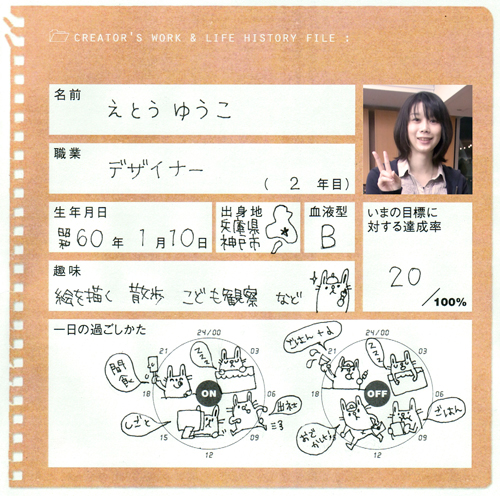 CREATOR'S WORK & LIFE HISTORY FILE :
名前
えとう ゆうこ
職業
デザイナー
( 2 年目)
生年月日
昭和60年 1月10日
出身地
兵庫県
神戸市
血液型
B
いまの目標に
対する達成率
20/100%
趣味
絵を描く 散歩 こども観察 など
一日の過ごしかた
24/00
03
06
09
12
15
18
21
ON
zzz
出社
しごと
間食
24/00
03
06
09
12
15
18
21
OFF
zzz
ごはん
おでかけ
ごはん+d